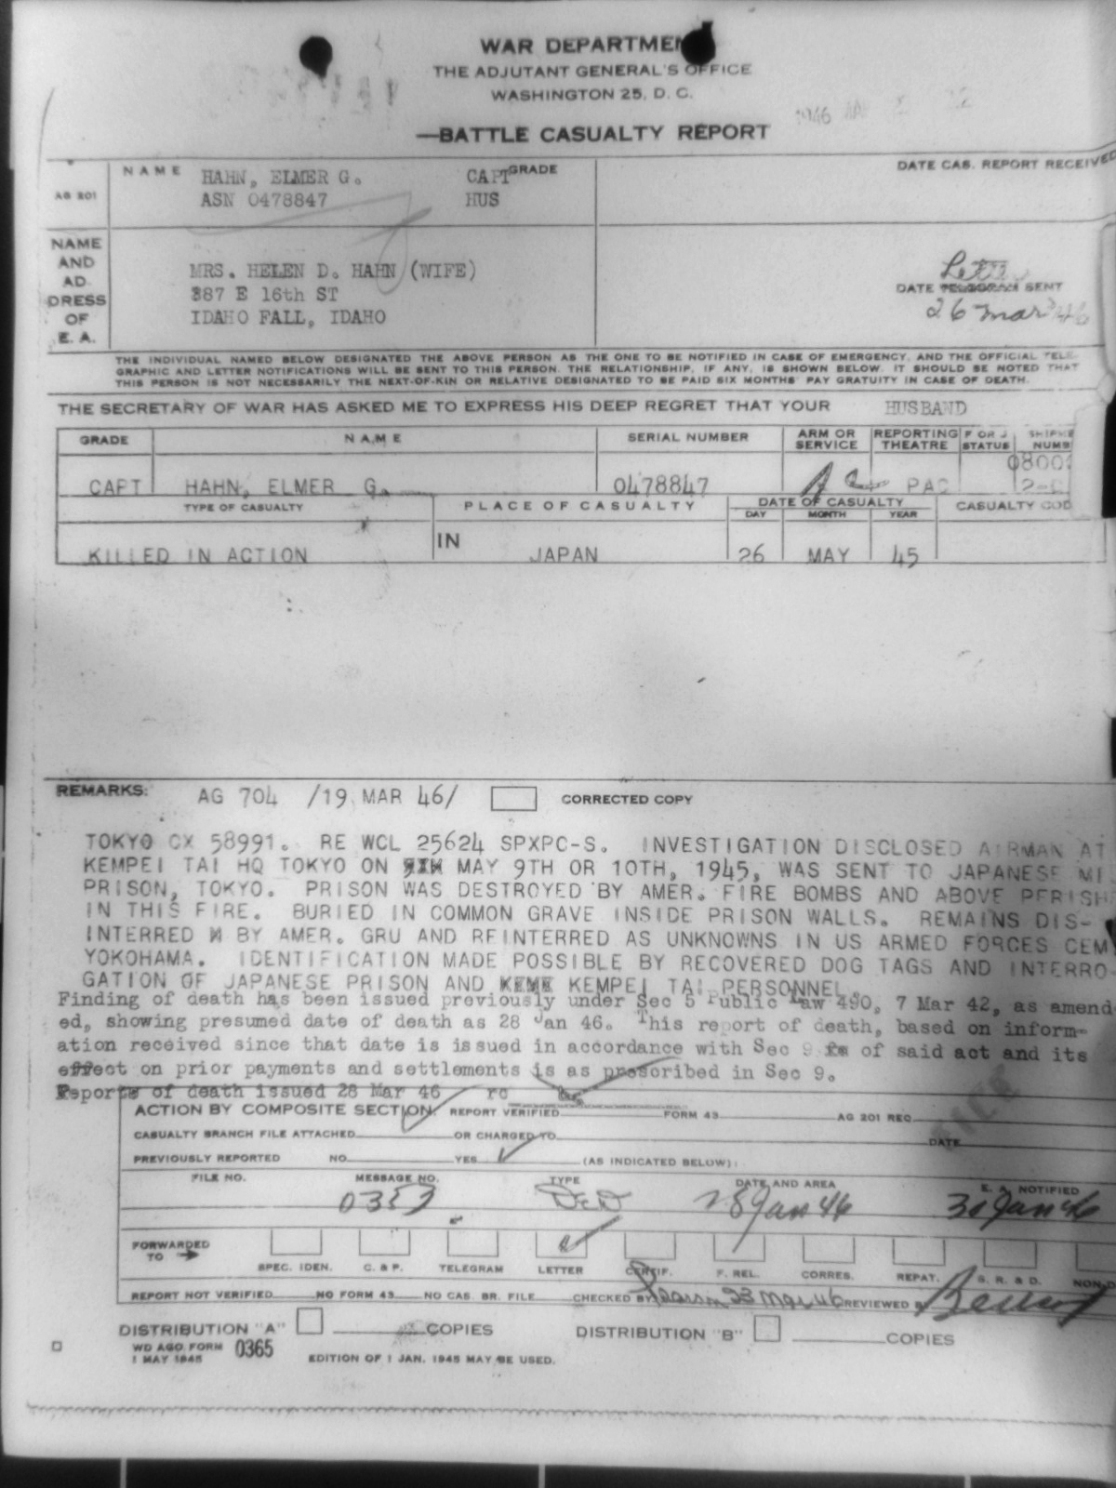 WAR DEPARTMEN
THE ADJUTANT GENERAL'S OFFICE
WASHINGTON 25, D. C.
1946
—BATTLE CASUALTY REPORT
NAME HAHN, ELMER G. CAPT GRADE DATE CAS. REPORT RECEIVED
AG 201 ASN 0478847 HUS
NAME AND AD- DRESS OF E. A.
MRS. HELEN D. HAHN (WIFE)
387 E 16th ST
IDAHO FALL, IDAHO
Letter
DATE TELEGRAM SENT
26 Mar 46
THE INDIVIDUAL NAMED BELOW DESIGNATED THE ABOVE PERSON AS THE ONE TO BE NOTIFIED IN CASE OF EMERGENCY, AND THE OFFICIAL TELE-
GRAPHIC AND LETTER NOTIFICATIONS WILL BE SENT TO THIS PERSON. THE RELATIONSHIP, IF ANY, IS SHOWN BELOW. IT SHOULD BE NOTED THAT
THIS PERSON IS NOT NECESSARILY THE NEXT-OF-KIN OR RELATIVE DESIGNATED TO BE PAID SIX MONTHS' PAY GRATUITY IN CASE OF DEATH.
THE SECRETARY OF WAR HAS ASKED ME TO EXPRESS HIS DEEP REGRET THAT YOUR HUSBAND
GRADE NAME SERIAL NUMBER ARM OR SERVICE REPORTING THEATRE F OR J STATUS SHIPME NUMB
CAPT HAHN, ELMER G. 0478847 AC PAC
TYPE OF CASUALTY PLACE OF CASUALTY DATE OF CASUALTY CASUALTY COD
DAY MONTH YEAR
KILLED IN ACTION IN JAPAN 26 MAY 45
REMARKS: AG 704 /19 MAR 46/ CORRECTED COPY
TOKYO CX 58991. RE WCL 25624 SPXPC-S. INVESTIGATION DISCLOSED AIRMAN AT
KEMPEI TAI HQ TOKYO ON MAY 9TH OR 10TH, 1945, WAS SENT TO JAPANESE MI
PRISON, TOKYO. PRISON WAS DESTROYED BY AMER. FIRE BOMBS AND ABOVE PERISH
IN THIS FIRE. BURIED IN COMMON GRAVE INSIDE PRISON WALLS. REMAINS DIS-
INTERRED BY AMER. GRU AND REINTERRED AS UNKNOWNS IN US ARMED FORCES CEM
YOKOHAMA. IDENTIFICATION MADE POSSIBLE BY RECOVERED DOG TAGS AND INTERRO-
GATION OF JAPANESE PRISON AND KEMPEI TAI PERSONNEL.
Finding of death has been issued previously under Sec 5 Public Law 490, 7 Mar 42, as amend
ed, showing presumed date of death as 28 Jan 46. This report of death, based on inform-
ation received since that date is issued in accordance with Sec 9 of said act and its
effect on prior payments and settlements is as prescribed in Sec 9.
Reports of death issued 28 Mar 46 rc
ACTION BY COMPOSITE SECTION: REPORT VERIFIED FORM 43 AG 201 REQ
CASUALTY BRANCH FILE ATTACHED OR CHARGED TO DATE
PREVIOUSLY REPORTED NO YES (AS INDICATED BELOW):
FILE NO. MESSAGE NO. TYPE DATE AND AREA E. A. NOTIFIED
DED 28 Jan 46 30 Jan 46
FORWARDED TO
SPEC. IDEN. C. & P. TELEGRAM LETTER CERTIF. F. REL. CORRES. REPAT. S. R. & D. NON-D
REPORT NOT VERIFIED NO FORM 43 NO CAS. BR. FILE CHECKED BY Pearson 23 Mar 46 REVIEWED B
DISTRIBUTION "A" COPIES DISTRIBUTION "B" COPIES
WD AGO FORM 0365
1 MAY 1945 EDITION OF 1 JAN. 1945 MAY BE USED.